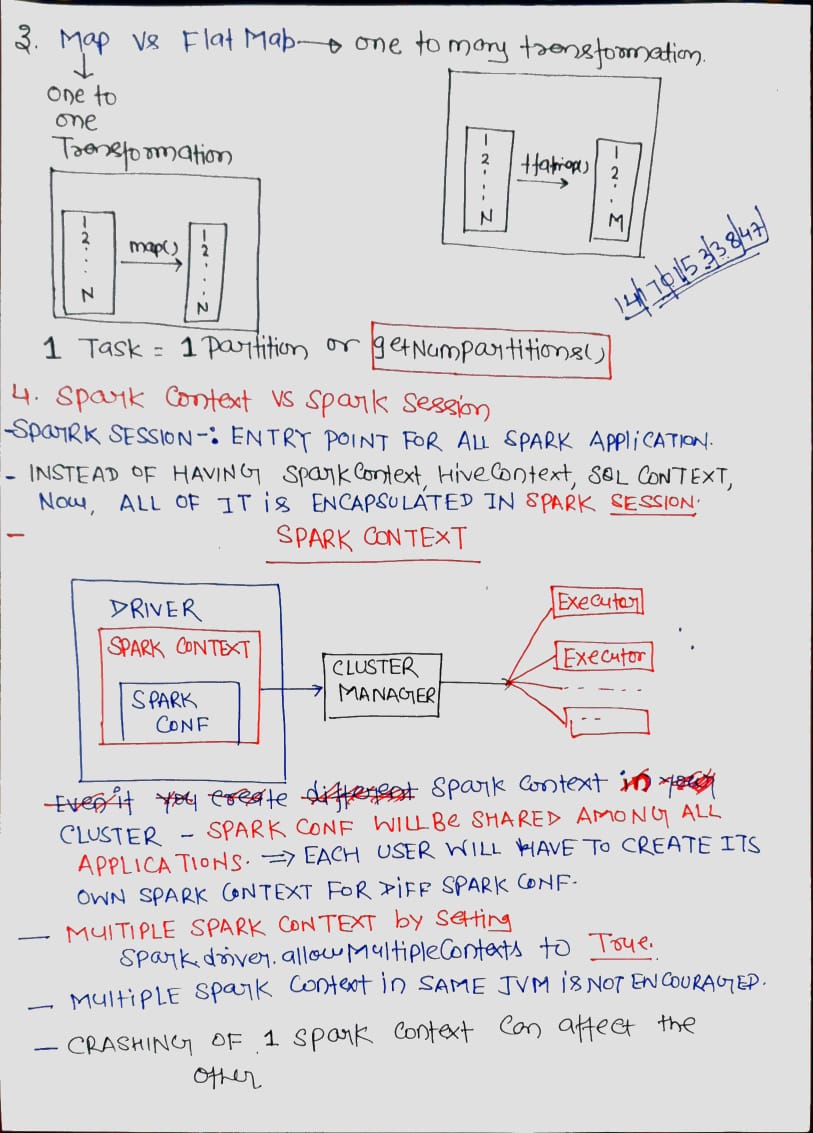 3. Map vs Flat Map → one to many transformation.
↓
one to
one
Transformation
1
2
N
map()
1
2
N
1
2
N
flatmap()
1
2
M
1 Task = 1 Partition or getNumpartitions()
4. Spark Context vs Spark Session
- SPARK SESSION -: ENTRY POINT FOR ALL SPARK APPLICATION.
- INSTEAD OF HAVING Spark Context, Hive Context, SQL CONTEXT,
Now, ALL OF IT is ENCAPSULATED IN SPARK SESSION.
-
SPARK CONTEXT
DRIVER
SPARK CONTEXT
SPARK
CONF
CLUSTER
MANAGER
Executor
Executor
Even if you create different Spark Context in your
CLUSTER - SPARK CONF WILL BE SHARED AMONG ALL
APPLICATIONS. ⇒ EACH USER WILL HAVE TO CREATE ITS
OWN SPARK CONTEXT FOR DIFF SPARK CONF.
- MULTIPLE SPARK CONTEXT by Setting
Spark.driver.allowMultipleContexts to True.
- MULTIPLE Spark Context in SAME JVM is NOT ENCOURAGED.
- CRASHING OF 1 Spark Context Can affect the
other